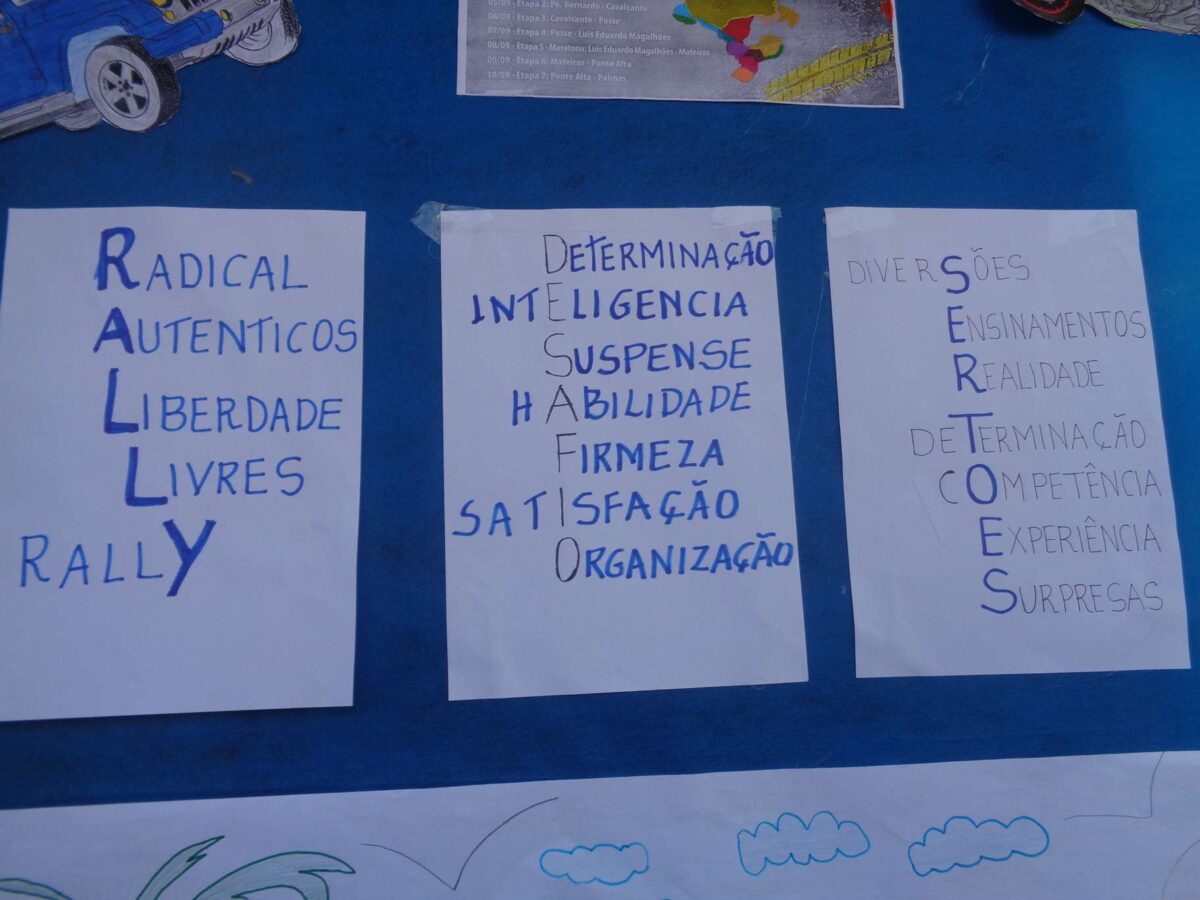 05/09 - Etapa 2: Pe. Bernardo - Cavalcante
06/09 - Etapa 3: Cavalcante - Posse
07/09 - Etapa 4: Posse - Luis Eduardo Magalhães
08/09 - Etapa 5 - Maratona: Luis Eduardo Magalhães - Mateiros
09/09 - Etapa 6: Mateiros - Ponte Alta
10/09 - Etapa 7: Ponte Alta - Palmas
RADICAL
AUTENTICOS
LIBERDADE
LIVRES
RALLY
DETERMINAÇÃO
INTELIGENCIA
SUSPENSE
HABILIDADE
FIRMEZA
SATISFAÇÃO
ORGANIZAÇÃO
DIVERSÕES
ENSINAMENTOS
REALIDADE
DETERMINAÇÃO
COMPETÊNCIA
EXPERIÊNCIA
SURPRESAS